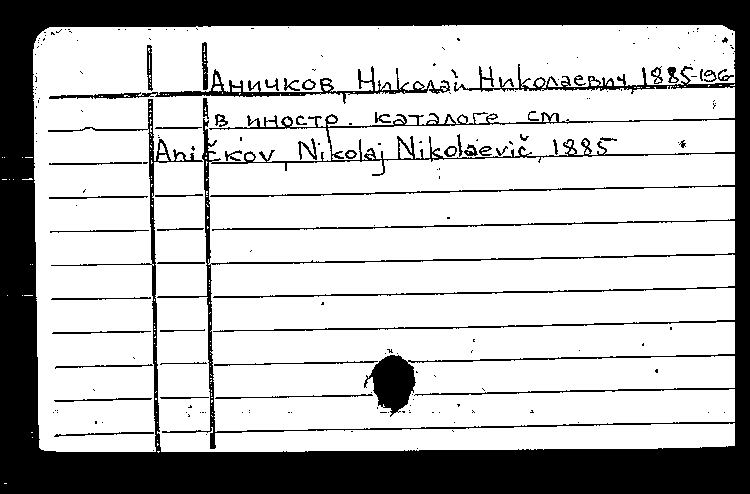 Аничков, Николай Николаевич, 1885-196
в иностр. каталоге см.
Aničkov, Nikolaj Nikolaevič, 1885